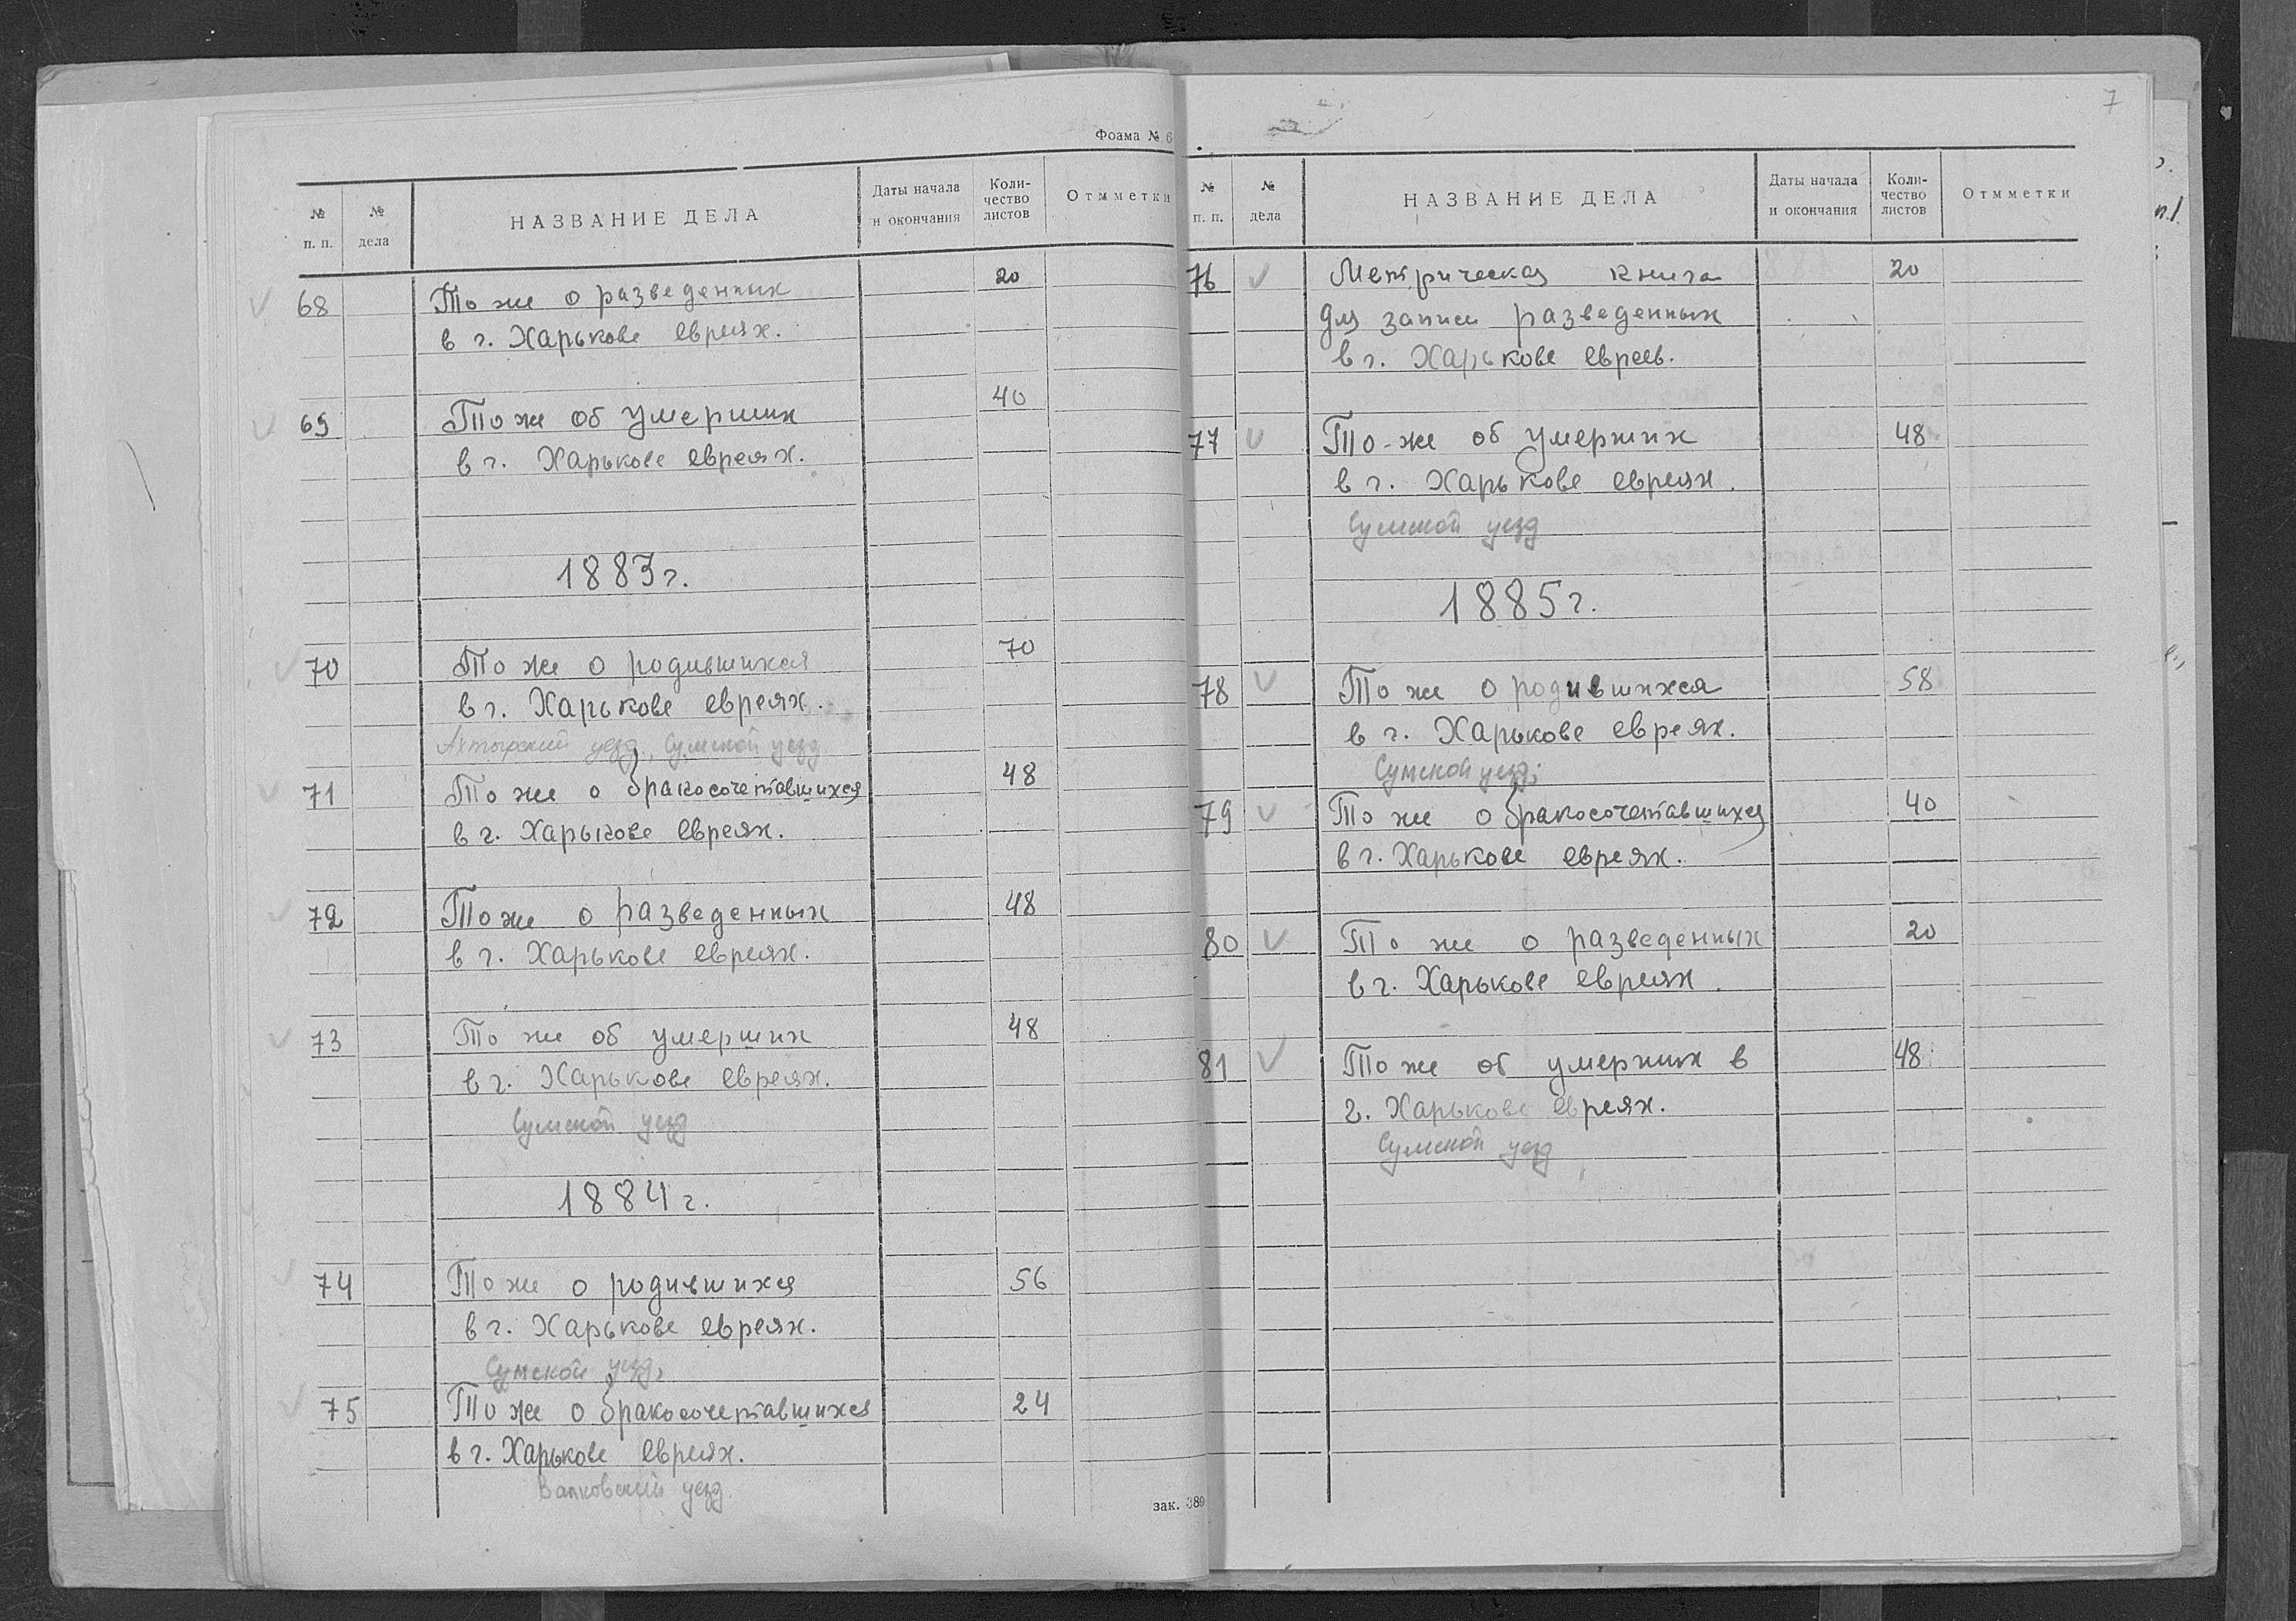 Фоама № 6
№ п. п.
№ дела
НАЗВАНИЕ ДЕЛА
Даты начала и окончания
Коли-
чество
листов
Отмметки
68 То же о разведенных 20
в г. Харькове евреях.
69 То же об умерших 40
в г. Харькове евреях.
1883 г.
70 То же о родившихся 70
в г. Харькове евреях.
Ахтырский уезд, Сумской уезд
71 То же о бракосочетавшихся 48
в г. Харькове евреях.
72 То же о разведенных 48
в г. Харькове евреях.
73 То же об умерших 48
в г. Харькове евреях.
Сумской уезд
1884 г.
74 То же о родившихся 56
в г. Харькове евреях.
Сумской уезд,
75 То же о бракосочетавшихся 24
в г. Харькове евреях.
Валковский уезд
зак. 389
7
№ п. п.
№ дела
НАЗВАНИЕ ДЕЛА
Даты начала и окончания
Коли-
чество
листов
Отмметки
76 Метрическая книга 20
для записи разведенных
в г. Харькове евреев.
77 То-же об умерших 48
в г. Харькове евреях.
Сумской уезд
1885 г.
78 То же о родившихся 58
в г. Харькове евреях.
Сумской уезд;
79 То же о бракосочетавшихся 40
в г. Харькове евреях.
80 То же о разведенных 20
в г. Харькове евреях.
81 То же об умерших в 48
г. Харькове евреях.
Сумской уезд